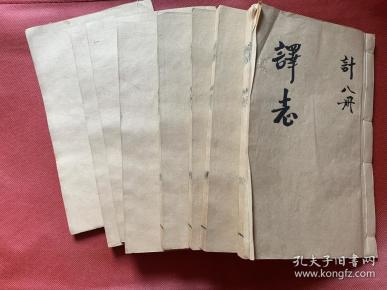 計八冊
譯志
孔夫子旧书网
www.kongfz.com